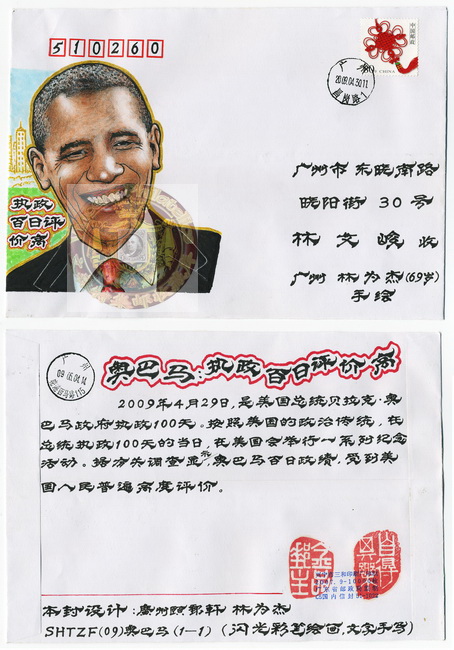 510260
中国邮政
CHINA
广州
2009.04.30.11
执政
百日评
价高
广州市 东晓南路
晓阳街 30号
林文峻 收
广州 林为杰(69岁)
手绘
广州
奥巴马:执政百日评价高
2009年4月29日,是美国总统贝拉克·奥
巴马政府执政100天。按照美国的政治传统,在
总统执政100天的当日,在美国会举行一系列纪念
活动。据有关调查显示,奥巴马百日政绩,受到美
国人民普遍高度评价。
本封设计:广州颐邮轩 林为杰
SHTZF(09)奥巴马(1—1)(闪光彩笔绘画,文字手写)